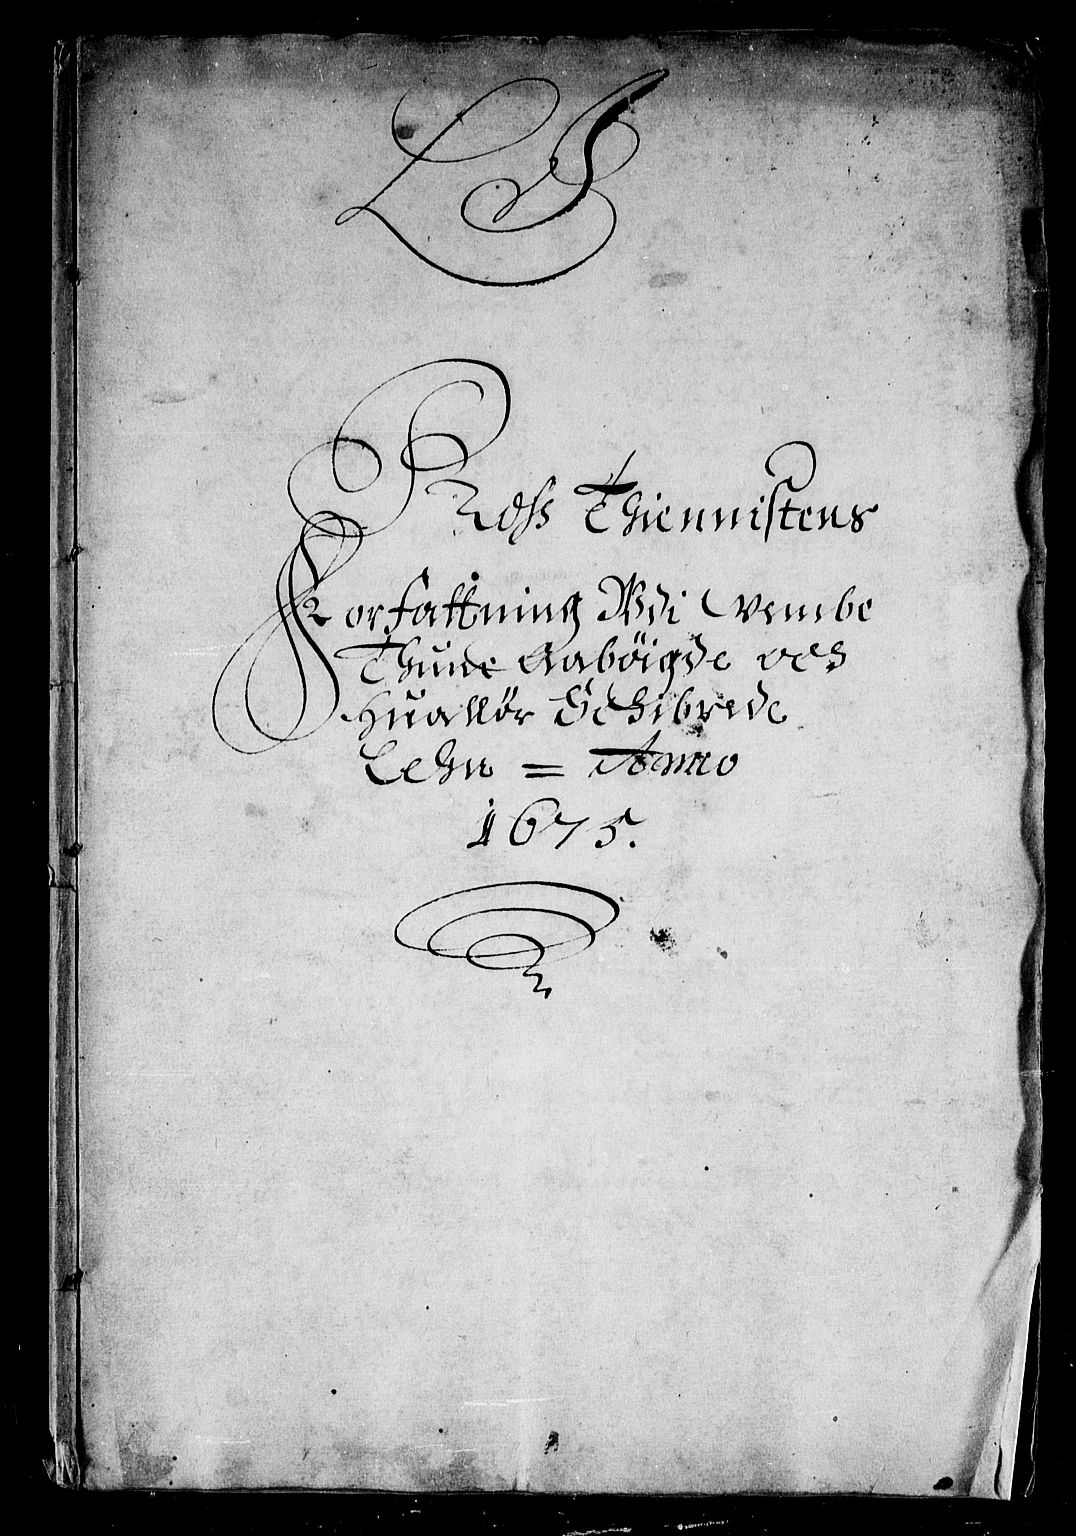 LS
Ross Thiennistens
Forfattning Udi Wembe
Thude Aabøigde och
Huallør Schibrede
Lehn = Anno
1675.